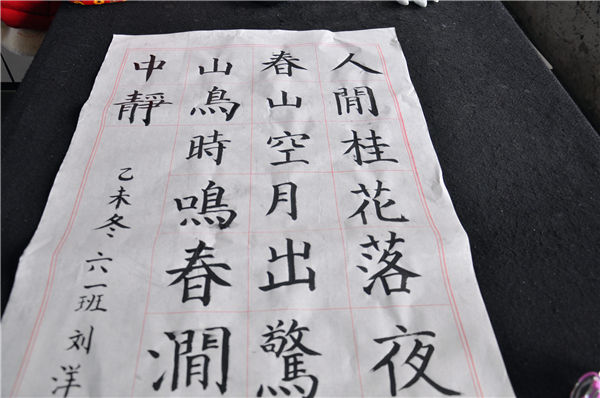 人閒桂花落夜
春山空月出驚
山鳥時鳴春澗
中靜
乙未冬 六一班 刘洋